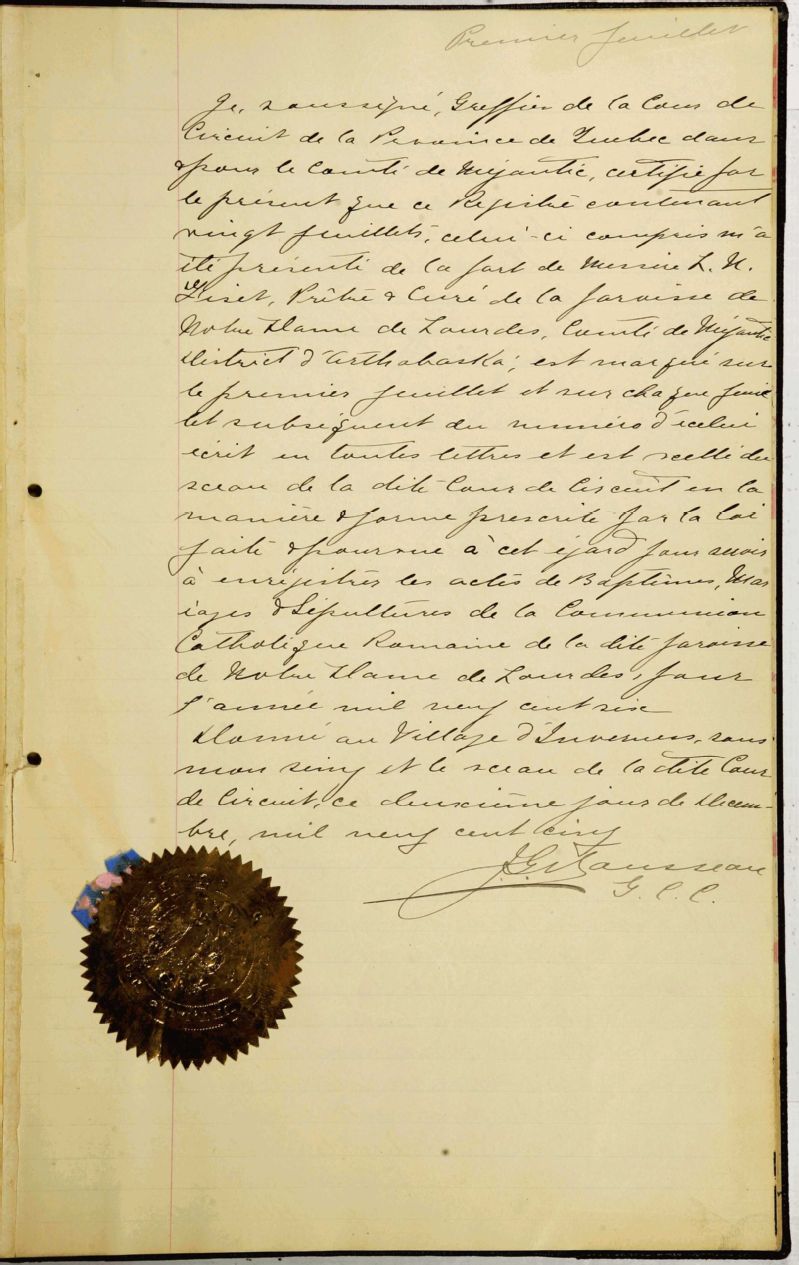 Premier feuillet
Je, soussigné, Greffier de la Cour de
Circuit de la Province de Quebec dans
& pour le Comté de Mégantic, certifie par
le présent que ce Registre contenant
vingt feuillets, celui-ci compris m'a
été présenté de la part de Messire L. N.
Liset, Prêtre & Curé de la paroisse de
Notre Dame de Lourdes, Comté de Mégantic
District d'Arthabaska, est marqué sur
le premier feuillet et sur chaque feuil
let subséquent du numéro d'icelui
écrit en toutes lettres et est scellé du
sceau de la dite Cour de Circuit en la
manière & forme prescrite par la loi
faite & pourvue à cet égard pour servir
à enrégistrer les actes de Baptêmes, Mar
iages & Sépultures de la Communion
Catholique Romaine de la dite paroisse
de Notre Dame de Lourdes, pour
l'année mil neuf cent six
Donné au Village d'Inverness, sous
mon seing et le sceau de la dite Cour
de Circuit, ce deuxième jour de Décem-
bre, mil neuf cent cinq
Rousseau
G. C. C.